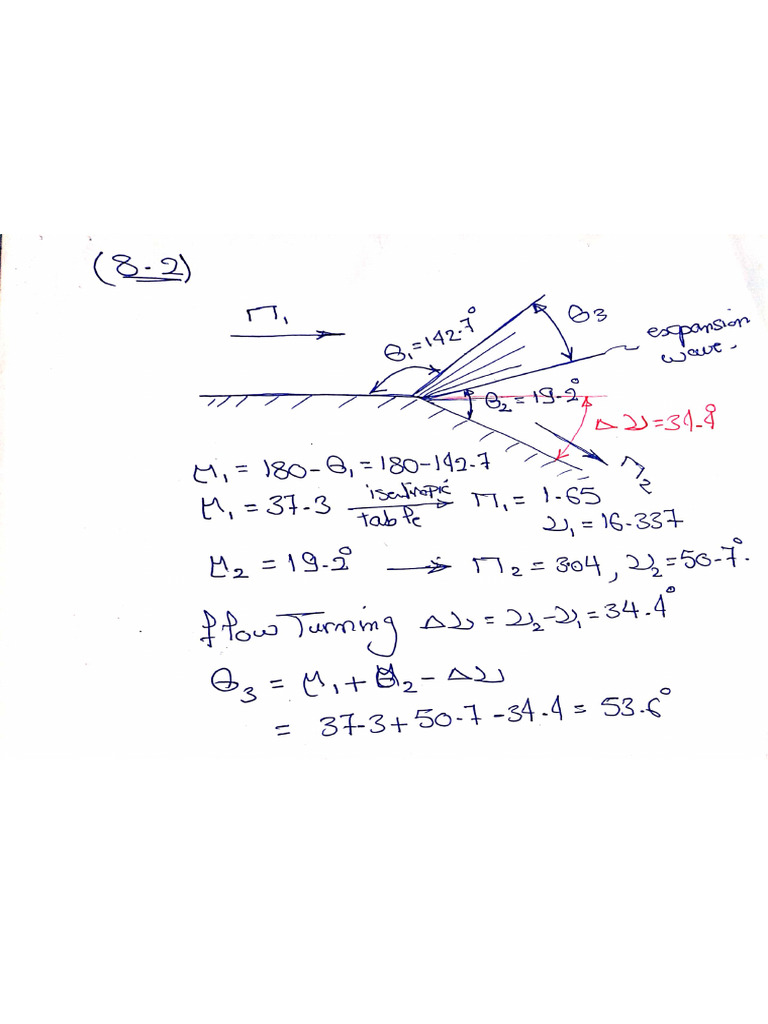 (8.2)
M₁
θ₁=142.7°
θ₃
expansion
wave.
θ₂=19.2°
Δν=34.4°
M₂
μ₁ = 180-θ₁ = 180-142.7
μ₁ = 37.3 isentropic table → M₁ = 1.65
ν₁ = 16.337
μ₂ = 19.2° → M₂ = 304, ν₂=50.7°.
flow Turning Δν = ν₂-ν₁ = 34.4°
θ₃ = μ₁ + μ₂ - Δν
= 37.3 + 50.7 - 34.4 = 53.6°